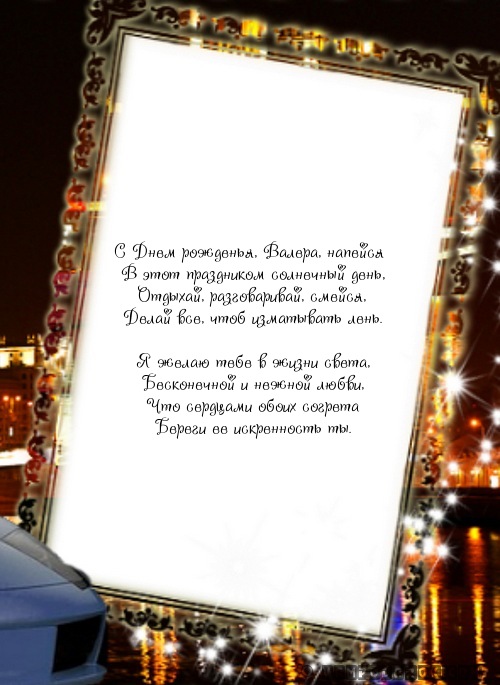 С Днем рожденья, Валера, напейся
В этот праздником солнечный день,
Отдыхай, разговаривай, смейся,
Делай все, чтоб изматывать лень.
Я желаю тебе в жизни света,
Бесконечной и нежной любви,
Что сердцами обоих согрета
Береги ее искренность ты.